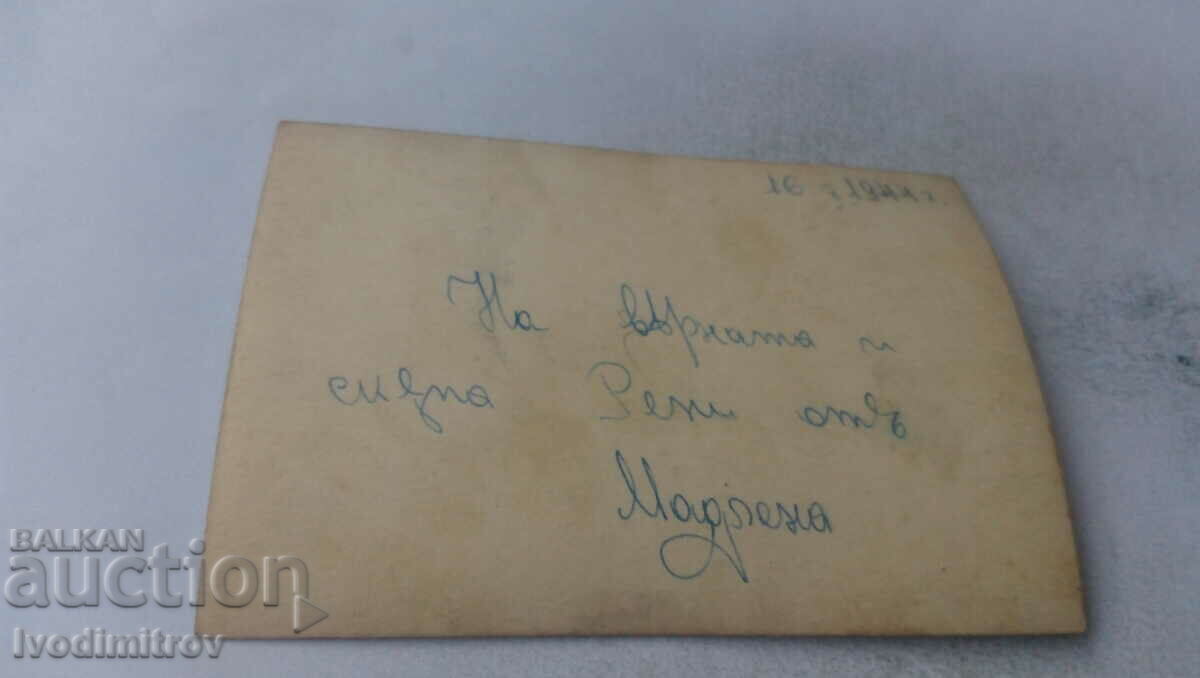 16 1941 г.
На вѣрната и
скѫпа Рени отъ
Мадлена
BALKAN
auction
Ivodimitrov